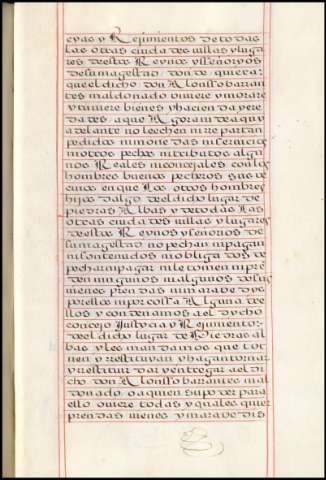 eyas y Rejimientos de todas
las otras ciudades uillas y luga
res destos Reynos y señoryos
de su magestad donde quiera
que el dicho don Alonsso barran
tes maldonado biuiere y morare
y tubiere bienes y hacienda y ere
dades a que Agora ni de aqui
adelante no le echen ni re partan
pedidos ni monedas ni seruicios
ni otros pechos ni tributos algu
nos Reales ni concejales con los
hombres buenos pecheros sus ve
cinos en que Los otros hombres
hijos dalgo del dicho lugar de
piedras Albas y de todas Las
otras ciudades uillas y lugares
destos Reynos y señorios de
su magestad no pechan ni pagan
ni son tenudos ni obligados de
pechar ni pagar ni le tomen ni pre
den ningunos ni algunos de sus
uienes prendas ni marauedis
por ellos ni por cossa Alguna de
llos y condenamos a el dicho
concejo Justycia y Rejimiento
del dicho lugar de Piedras al
bas y les mandamos que tor
nen y rrestituyan y hagan tornar
y rrestituir dar y entregar a el di
cho don Alonsso barrantes mal
donado o a quien su poder para
ello ouiere todas y quales quier
prendas uienes y marauedis